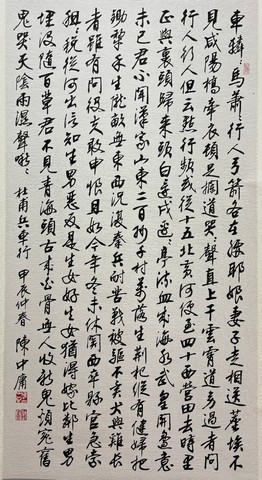 車轔〻馬蕭〻行人弓箭各在腰耶娘妻子走相送塵埃不
見咸陽橋牽衣頓足攔道哭〻聲直上干雲霄道旁過者問
行人〻但云點行頻或從十五北防河便至四十西營田去時里
正與裹頭歸來頭白還戍邊〻亭流血成海水武皇開邊意
未已君不聞漢家山東二百州千村萬落生荊杞縱有健婦把
鋤犁禾生隴畝無東西況復秦兵耐苦戰被驅不異犬與雞長
者雖有問役夫敢申恨且如今年冬未休關西卒縣官急索
租〻稅從何出信知生男惡反是生女好生女猶得嫁比鄰生男
埋沒隨百草君不見青海頭古來白骨無人收新鬼煩冤舊
鬼哭天陰雨濕聲啾〻 杜甫兵車行 甲辰仲春 陳中庸